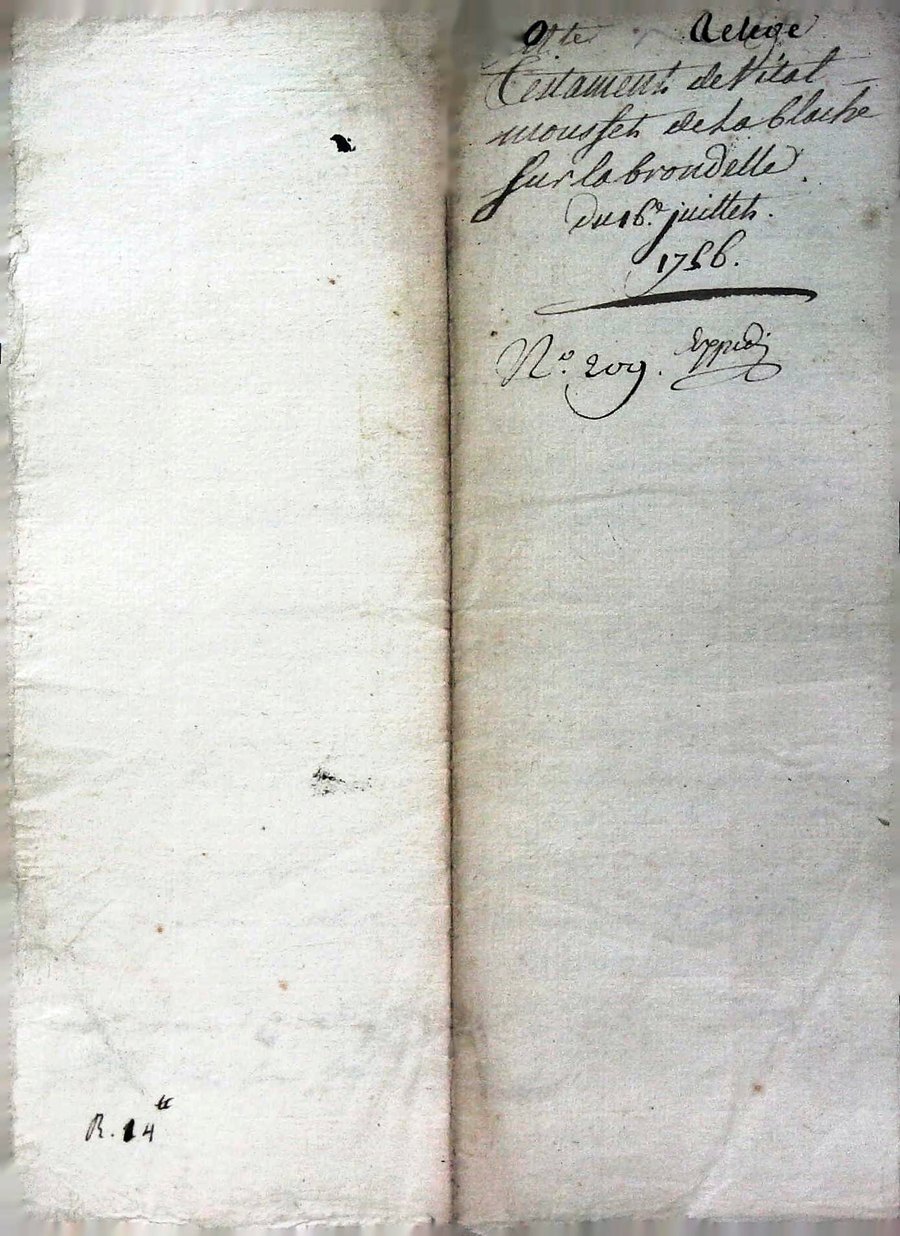 Testament de Vital
mousset de La blache
sur la brondelle
du 16e juillet
1756.
No. 209. Expedi
R. 14 tt